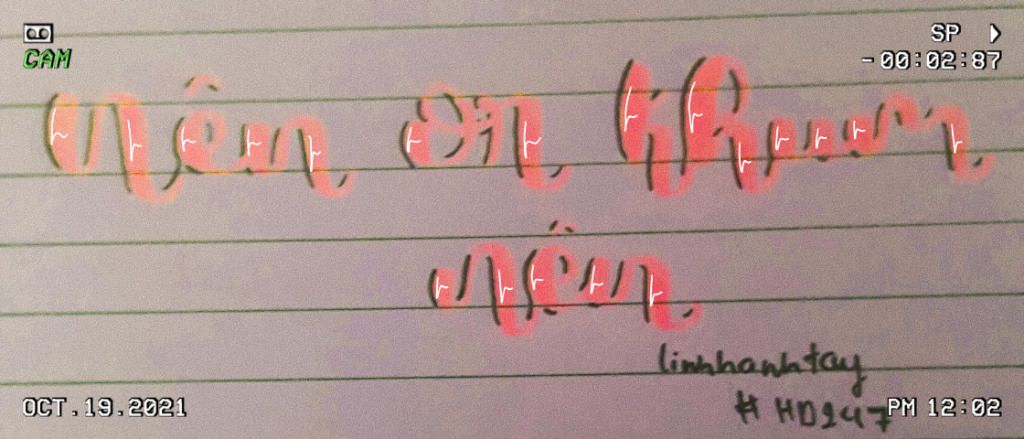 SP
CAM -00:02:87
Nên khum
nên
linhhanhtay
# HD247
OCT.19.2021 PM 12:02